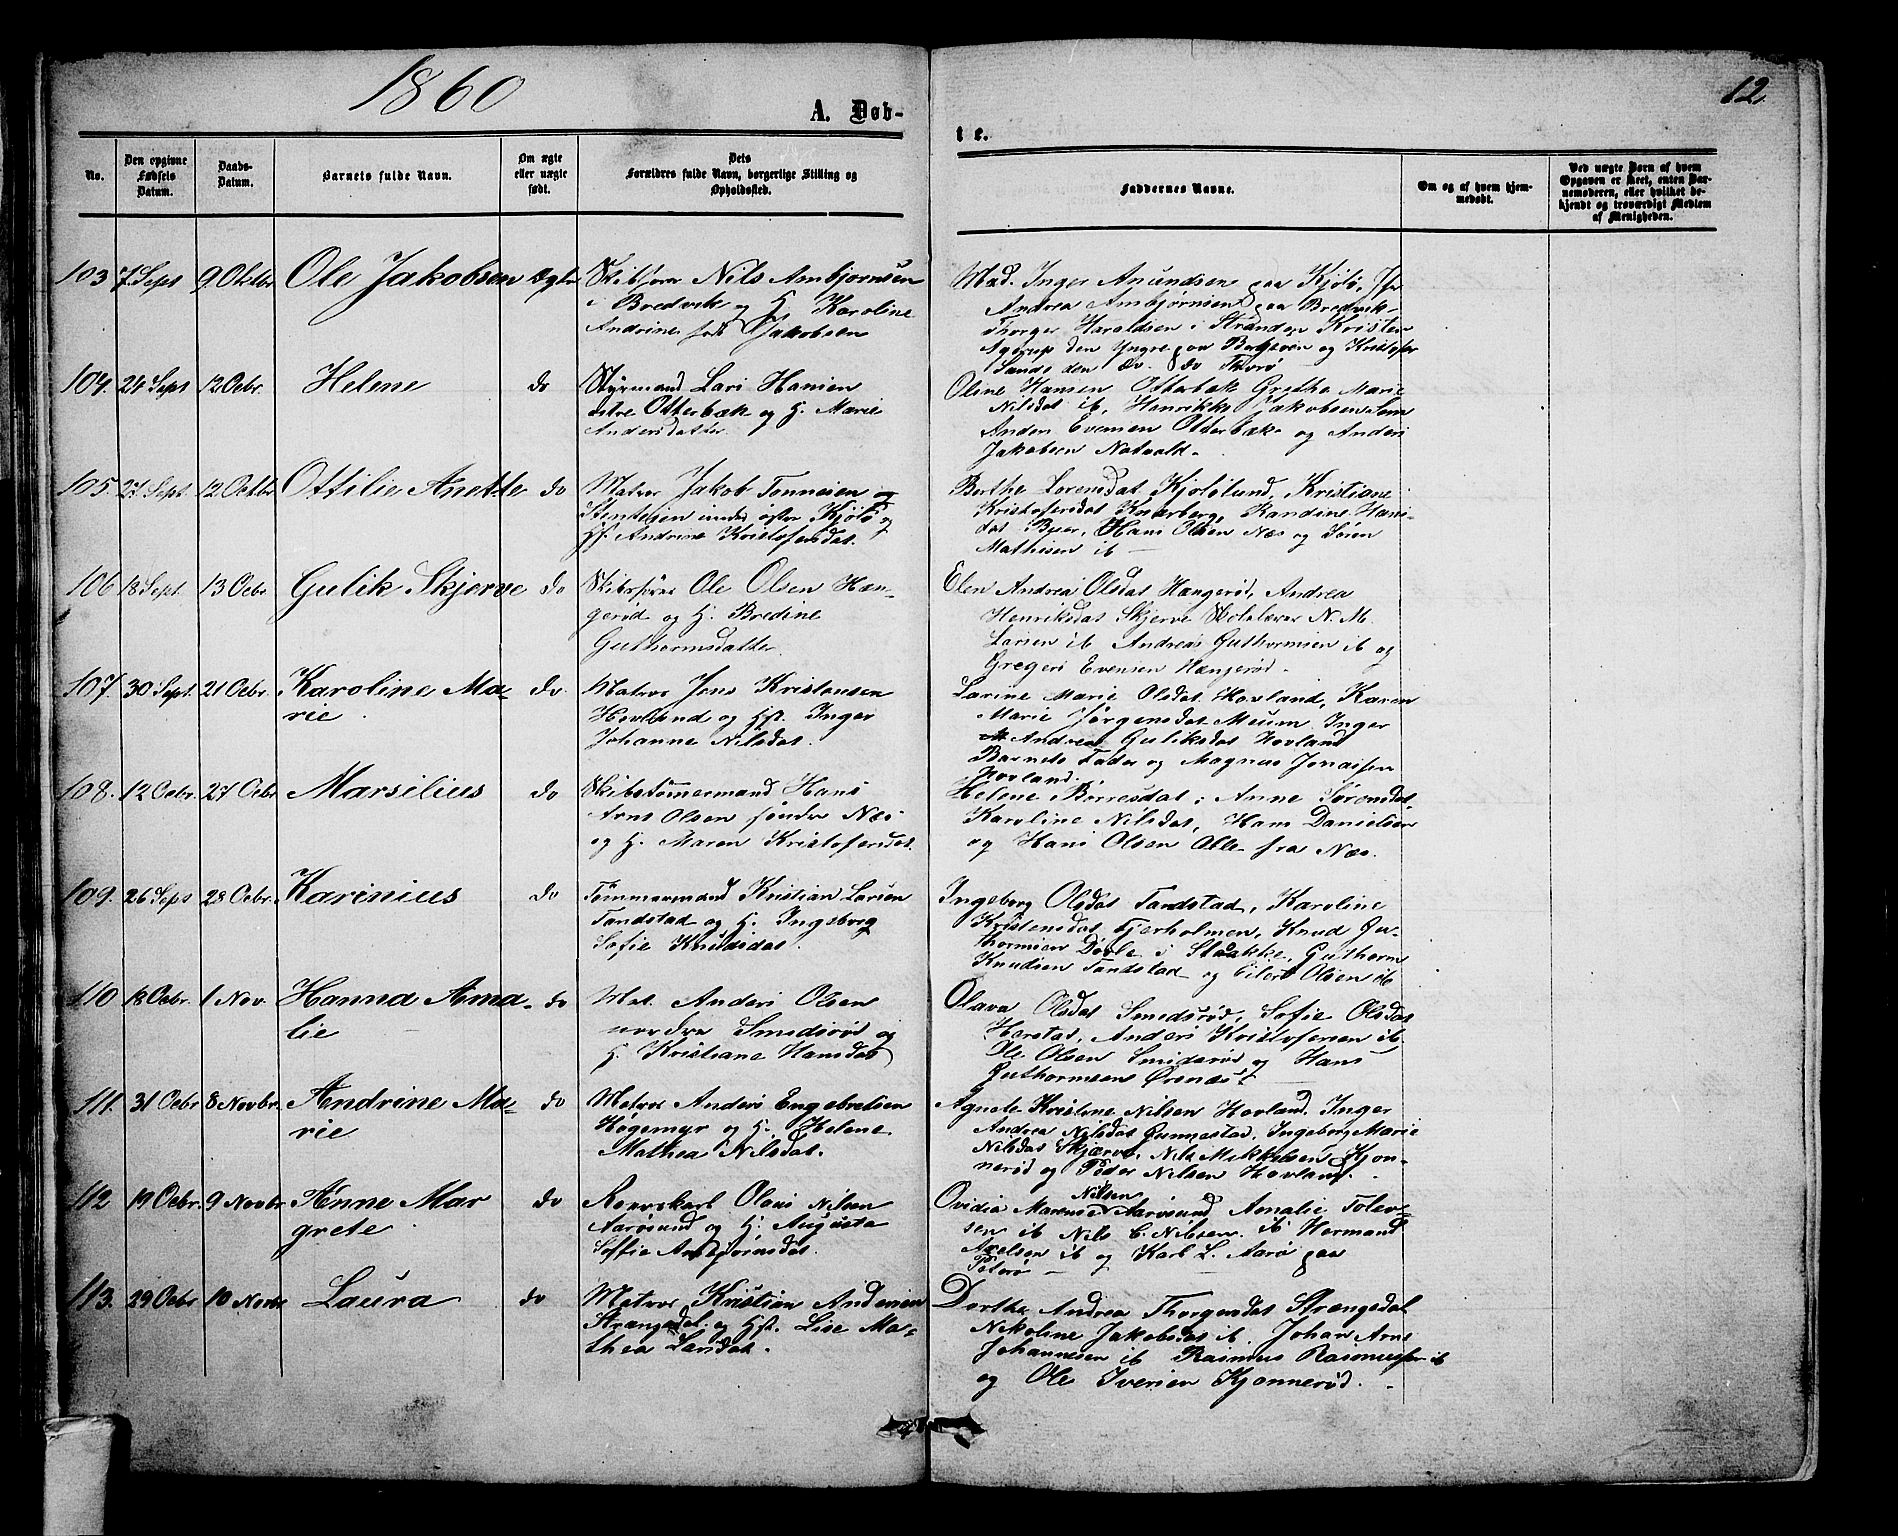 1860
12.
A. Døb-
t e.
No.
Den opgivne
Fødsels
Datum.
Daabs-
Datum.
Barnets fulde Navn.
Om ægte
eller uægte
født.
Dets
Forældres fulde Navn, borgerlige Stilling og
Opholdssted.
Faddernes Navne.
Om og af hvem hjem-
medøbt.
Ved uægte Børn af hvem
Opgaven er skeet, enten Bar-
nemoderen, eller hvilket be-
kjendt og troværdigt Medlem
af Menigheden.
103 7 Sept 9 Oktbr Ole Jakobsen Ægte
Skibsfører Nils Ambjørnsen
i Bredvik og H. Karoline
Andrine født Jakobsen
Mad. Inger Anundsen paa Kjölö,
Andrea Ambjørnsen paa Bredvik
Thorger Haraldsen i Stranden Kristen
Agerup den Yngre paa og Kristofer
Sands den
104. 24 Sept 12 Ocbr. Helene do
Styrmand Lars Hansen
østre Otterbæk og H. Marie
Andersdatter.
Oline Hansen Otterbæk Grethe Marie
Nilsdat ib, Henrikke Jakobsen
Anders Evensen Otterbæk og Anders
Jakobsen Natvold.
105. 27 Sept 12 Octbr Ottilie Anette do
Matros Jakob Tønnesen og
under østre Kjölö og
H. Andrine Kristofersdat.
Berthe Lorensdat Kjölölund, Kristiane
Kristofersdat Knarberg, Randine Hans-
dat Hans Olsen Næs og Sören
Mathisen ib —
106 18 Sept. 13 Ocbr Gulik Skjerve do
Skibsfører Ole Olsen Hæn-
gerød og H. Bredine
Guthormsdatter.
Elen Andrea Olsdat Hængerød, Andrea
Henriksdat Skjerve Skolelærer N. M.
Larsen ib Andreas Guthormsen ib og
Gregers Evensen Hængerød.
107. 30 Sept. 21 Ocbr. Karoline Ma- do.
rie
Matros Jens Kristensen
Hovland og Hst. Inger
Johanne Nilsdat.
Larine Marie Olsdat Hovland, Karen
Marie Jørgensdat Meum Inger
Andrea Guliksdat Hovland
Barnets Fader og Magnus Jonassen
Hovland.
108. 12 Ocbr. 27 Ocbr Marsilius do
Skibstömmermand Hans
Arnt Olsen söndre Næs
og H. Maren Kristofersdat.
Helene Börresdat, Anne Sörensdat
Karoline Nilsdat, Hans Danielsen
og Hans Olsen Alle fra Næs.
109. 26 Sept 28 Ocbr. Karinius do
Tömmermand Kristian Larsen
Tandstad og H. Ingeborg
Sofie Knudsdat.
Ingeborg Olsdat Tandstad, Karoline
Kristensdat Fjerholmen, Knud Gu-
thormsen Döole i Stokke, Guthorm
Knudsen Tandstad og Eilert Olsen ib
110 18 Ocbr. 1 Nov. Hanna Ama- do
lie
Mat. Anders Olsen
nordre Smidsröd og
H. Kristiane Hansdat
Olava Olsdat Smidsröd, Sofie Olsdat
Harstad, Anders Kristofersen ib
Ole Olsen Smidsröd og Hans
Guthormsen Örsnæs
111. 31 Ocbr 8 Novbr. Andrine Ma- do
rie
Matros Anders Engebretsen
Høgemyr og H. Helene
Mathea Nilsdat.
Agnete Kristine Nilsen Hovland, Inger
Andrea Nilsdat Gunnestad, Ingeborg Marie
Nilsdat Skjærve, Nils Mikkelsen Kjon-
neröd og Peder Nilsen Hovland.
112 19 Ocbr. 9 Novbr Anne Mar do
grete
Rorskarl Olaus Nilsen
Aarösund og H. Augusta
Soffie Ambjörnsdat.
Ovidia Marens Nilsen Aarösund Amalie Tolev-
sen ib Nils C. Nilsen ib Herman
Axelsen ib og Karl L. Aarö paa
113. 29 Ocbr 10 Novbr Laura do
Matros Kristian Andersen
Strængsdal og Hst. Lise Ma-
thea Larsdat.
Dorthe Andrea Thorgersdat Strængsdal
Nikoline Jakobsdat ib. Johan Arnt
Johannesen ib Rasmus Rasmussen ib
og Ole Iversen Kjonneröd.